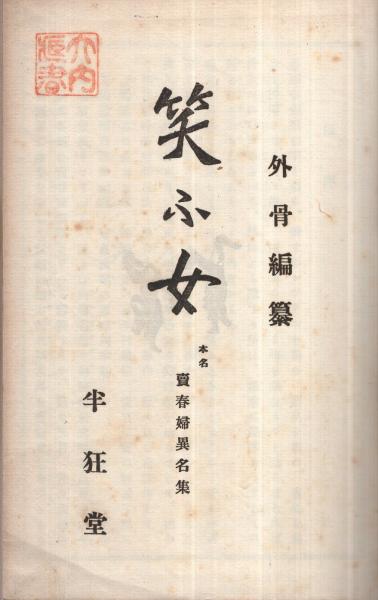 外骨編纂
笑ふ女
本名
賣春婦異名集
半狂堂